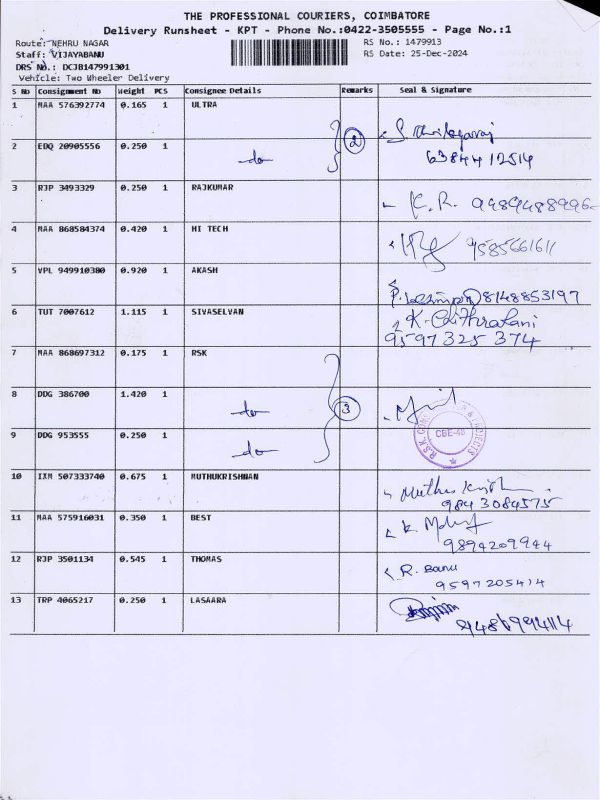 THE PROFESSIONAL COURIERS, COIMBATORE
Delivery Runsheet - KPT - Phone No.:0422-3505555 - Page No.:1
Route: NEHRU NAGAR RS No.: 1479913
Staff: VIJAYABANU RS Date: 25-Dec-2024
DRS No.: DCJB147991301
Vehicle: Two Wheeler Delivery
S No Consignment No Weight PCS Consignee Details Remarks Seal & Signature
1 MAA 576392774 0.165 1 ULTRA
2 EDQ 20905556 0.250 1 do 2 6384412514
3 RJP 3493329 0.250 1 RAJKUMAR K.R. 9489488996
4 MAA 868584374 0.420 1 HI TECH 9585661611
5 VPL 949910380 0.920 1 AKASH 8148853197
6 TUT 7007612 1.115 1 SIVASELVAN K-Chithralani
9597325 374
7 MAA 868697312 0.175 1 RSK
8 DDG 386700 1.420 1 do 3
9 DDG 953555 0.250 1 do R.S.K. & PROJECTS CBE-48
10 IXM 507333740 0.675 1 MUTHUKRISHNAN Muthu Krish
9843084575
11 MAA 575916031 0.350 1 BEST K.
9894209944
12 RJP 3501134 0.545 1 THOMAS R. Banu
9597205414
13 TRP 4065217 0.250 1 LASAARA